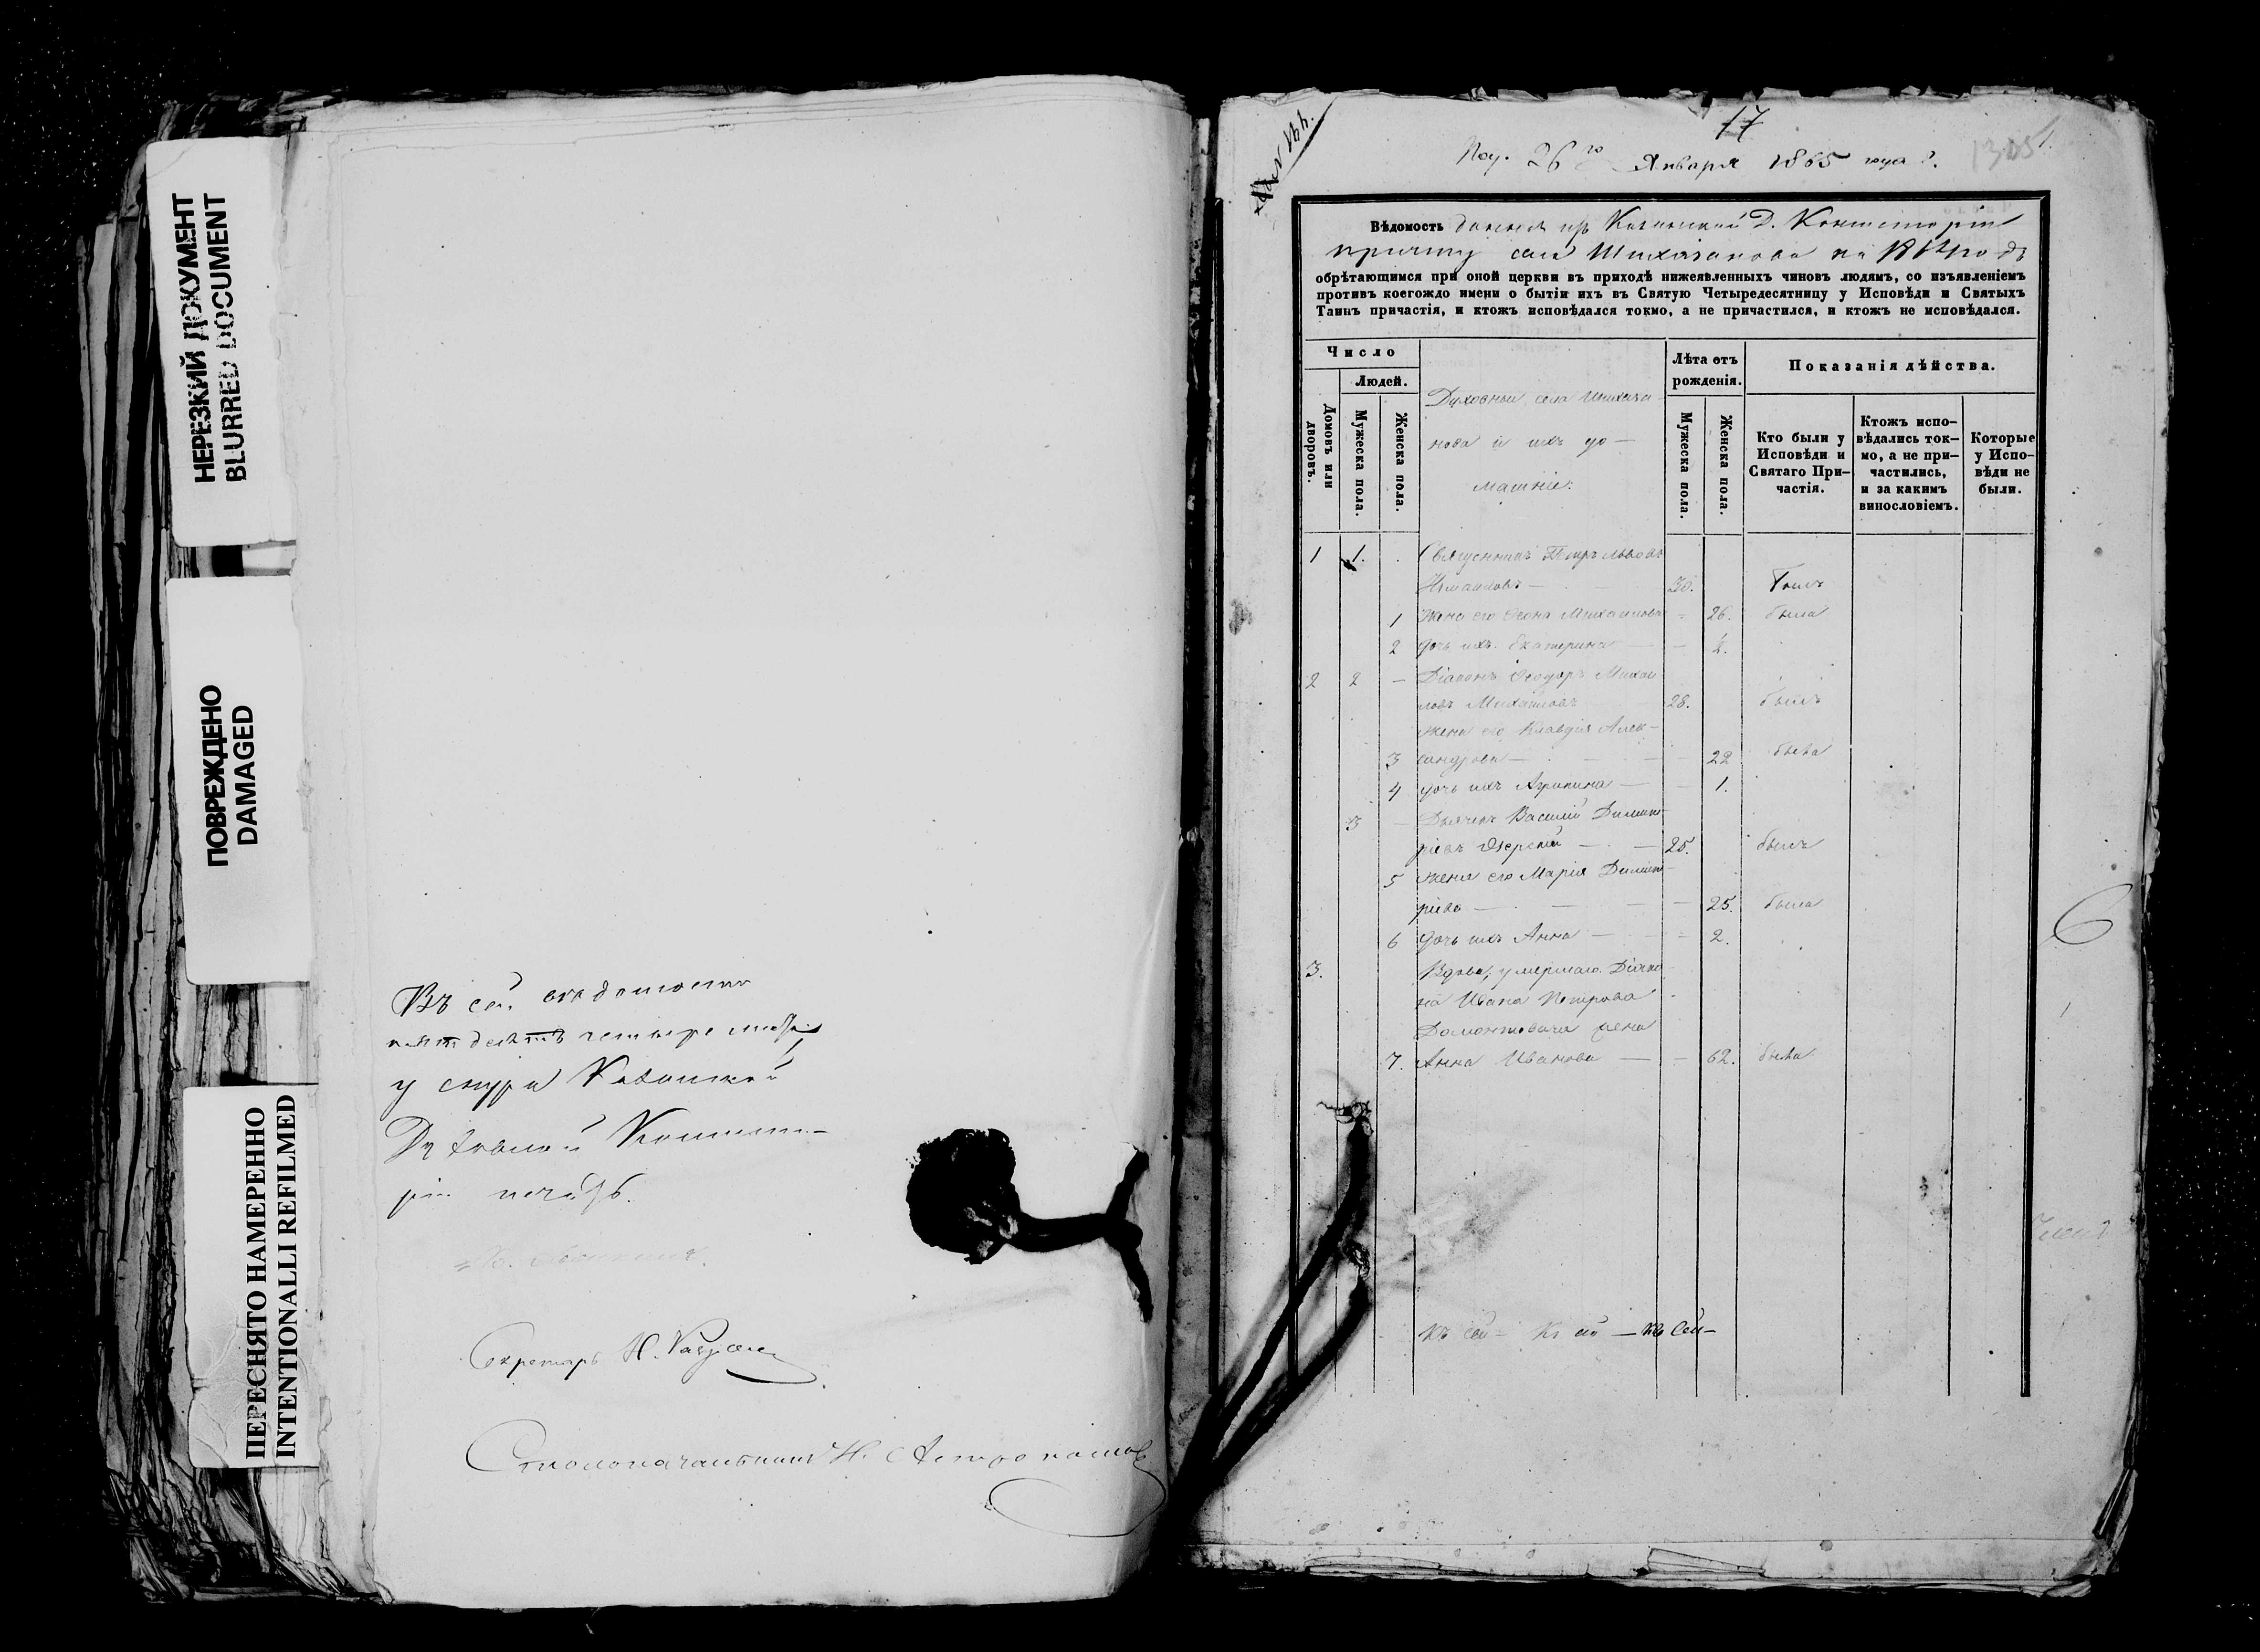 НЕРЕЗКИЙ ДОКУМЕНТ
BLURRED DOCUMENT
ПОВРЕЖДЕНО
DAMAGED
ПЕРЕСНЯТО НАМЕРЕННО
INTENTIONALLI REFILMED
Въ сей ведомости
пятьдесятъ четыре
у снура Казанской
Духовной Консисто-
ріи печать.
Секретарь Н.
Столоначальникъ Н.
17
Пол. 26го Января 1865 года
1305
1.
Вѣдомость данная изъ Казанской Д. Консисторіи
причту села Шихазанова на
обрѣтающимся при оной церкви въ приходѣ нижеявленныхъ чиновъ людямъ, со изъявленіемъ
противъ коегождо имени о бытіи ихъ въ Святую Четыредесятницу у Исповѣди и Святыхъ
Таинъ причастія, и ктожъ исповѣдался токмо, а не причастился, и ктожъ не исповѣдался.
Число
Людей.
Домовъ или дворовъ.
Мужеска пола.
Женска пола.
Духовныи села Шихаза-
нова и ихъ до-
машніе:
Лѣта отъ рожденія.
Мужеска пола.
Женска пола.
Показанія дѣйства.
Кто были у Исповѣди и Святаго При-частія.
Ктожъ испо-вѣдались ток-мо, а не при-частились, и за какимъ винословіемъ.
Которые у Испо-вѣди не были.
1 1. Священникъ Петръ Львовъ
Измаиловъ — 30. былъ
1 Жена его Михаилова — 26. была
2 дочь ихъ Екатерина — 2.
2 2 — Діаконъ Ѳеодоръ Михаи
ловъ Михаиловъ 28. былъ
жена его Клавдія Алек-
3 сандрова — 22 была
4 дочь ихъ Агрипина — 1.
3 — Дьячекъ Василій Димит-
ріевъ — 25. былъ
5 жена его Марія Димит-
ріева — 25. была
6 дочь ихъ Анна — 2.
3. Вдова, умершаго Діако-
на Ивана Петрова
жена
7. Анна Иванова — 62. была
6
Къ сей — Къ сей — Къ сей —